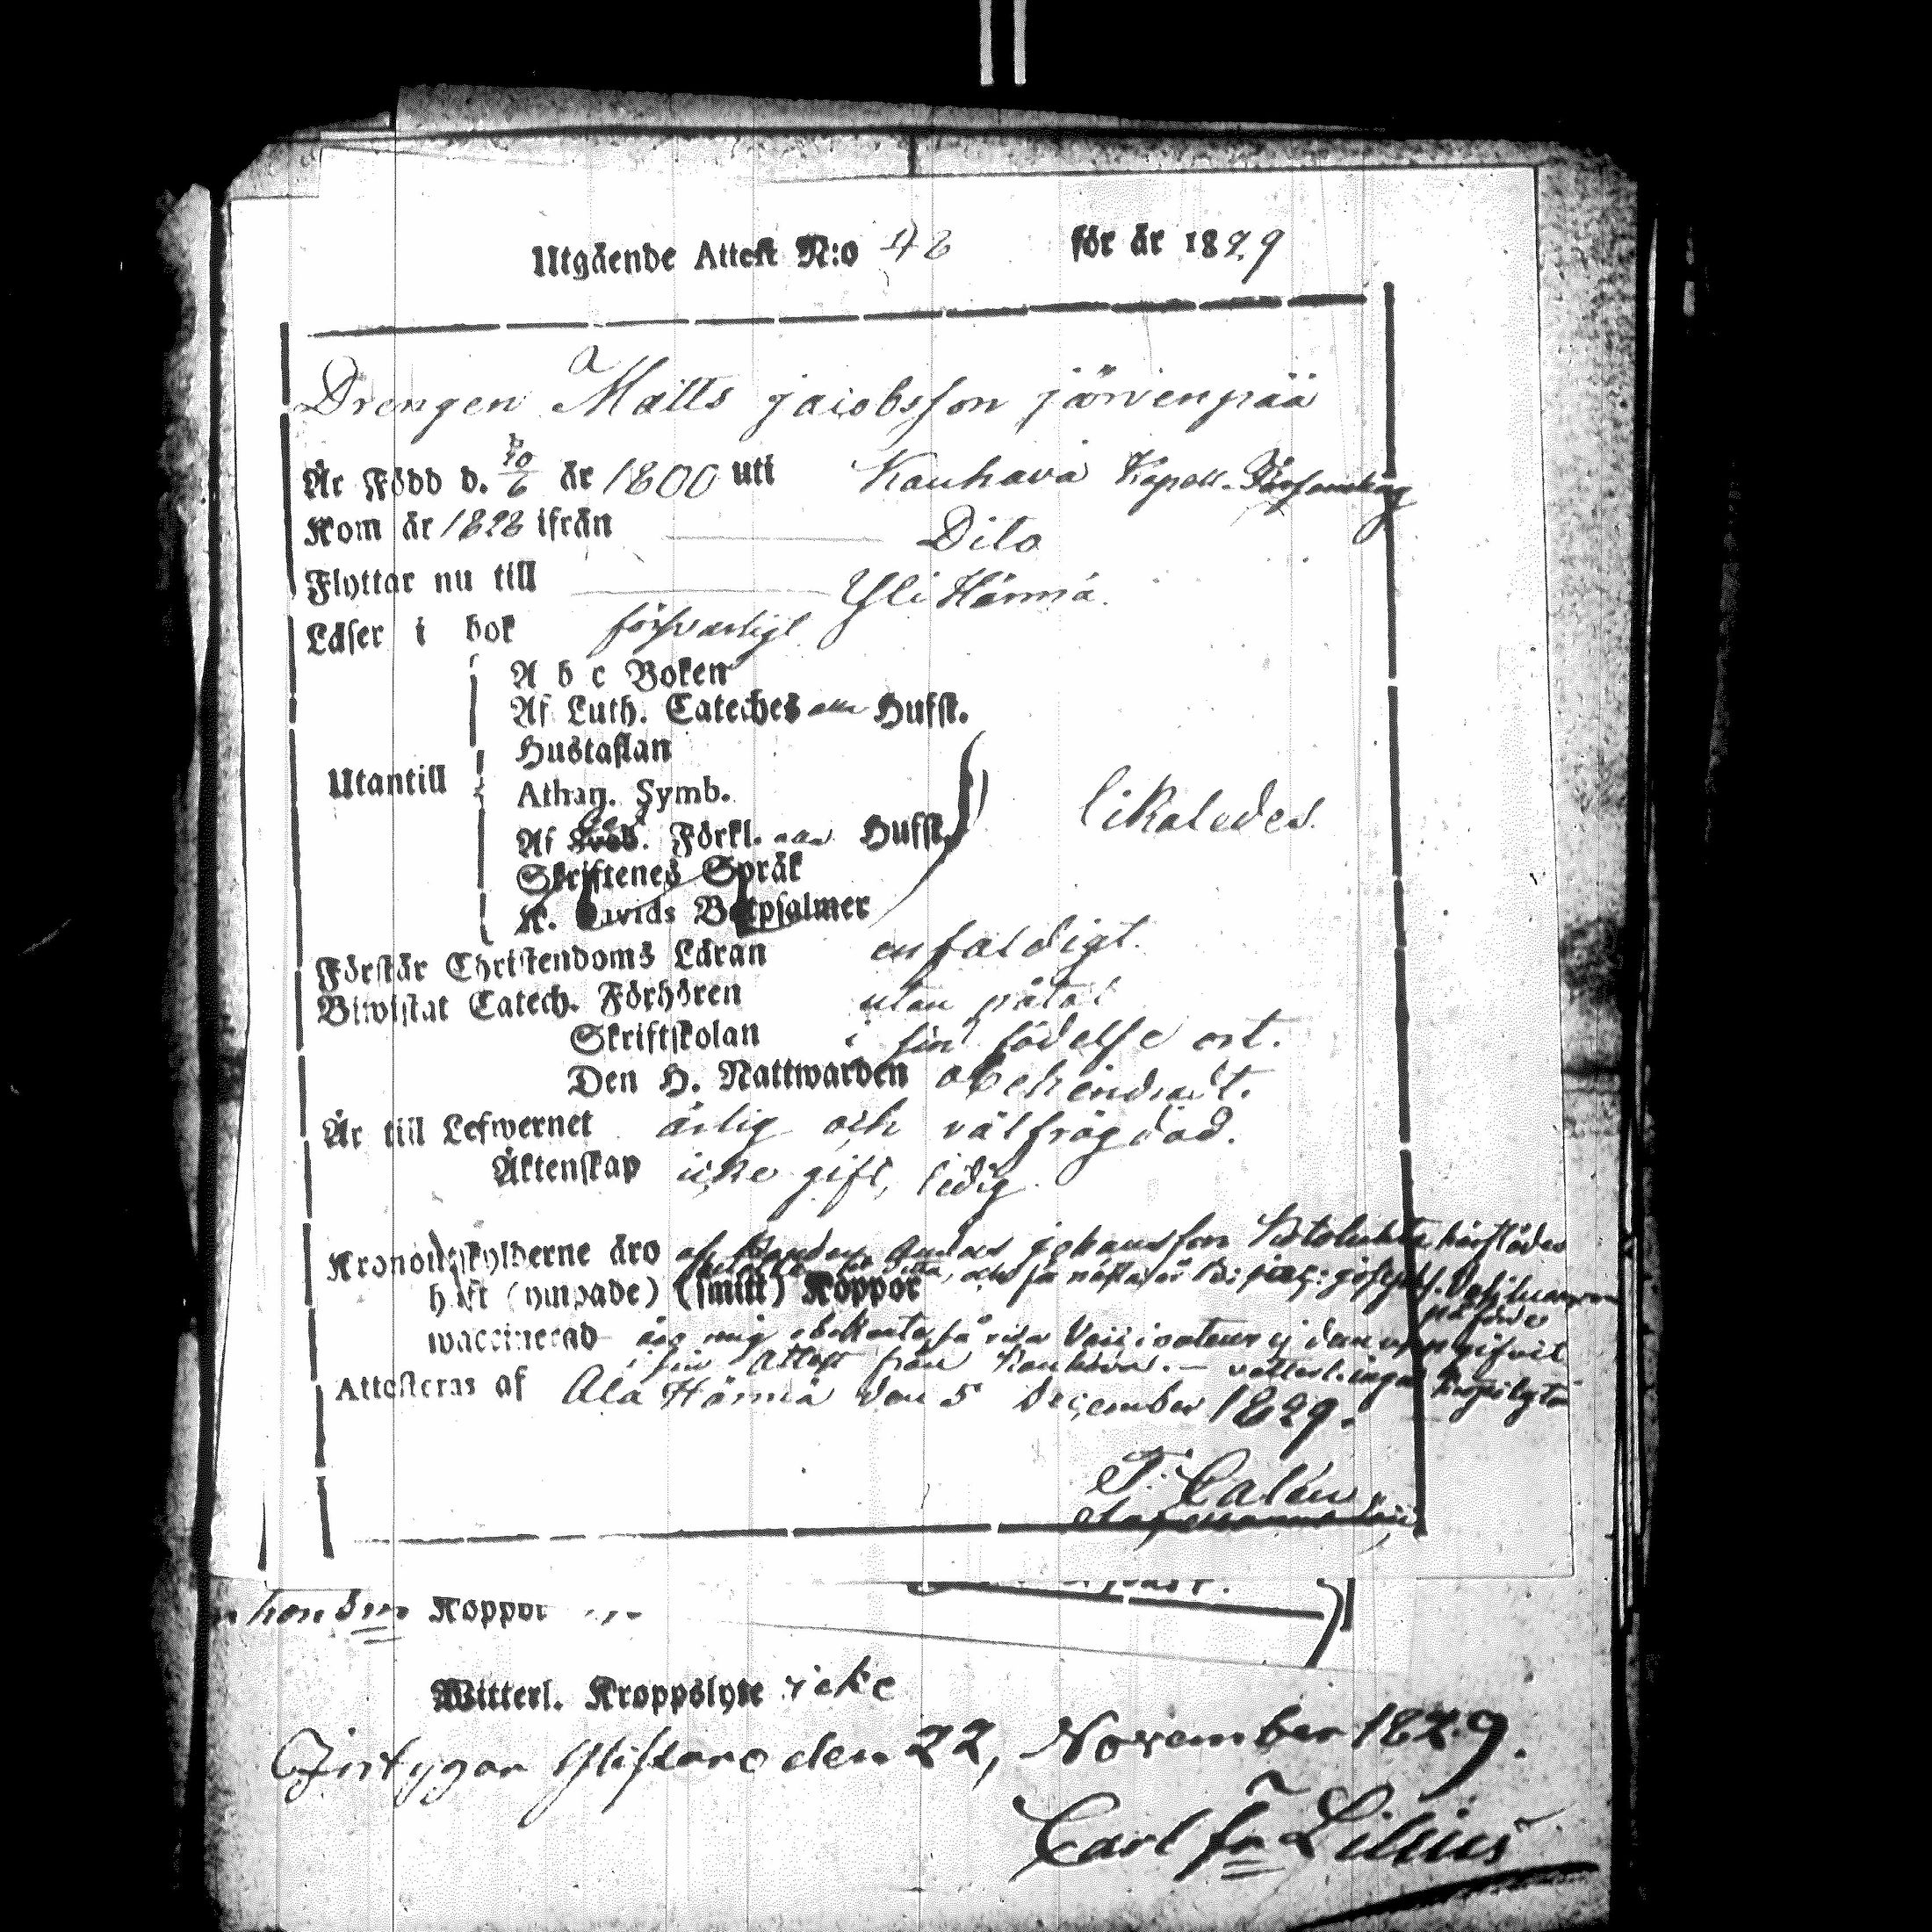 Utgående Attest N:o 48 för år 1829
Drengen Matts Jacobsson Järvenpää
Är Född d. 10/6 år 1800 uti Kauhava Kapell-Församling
Kom år 1828 ifrån Dito
Flyttar nu till Yli Härmä.
Läser i bok försvarligt
A b c Boken
Af Luth. Cateches alla Hufst.
Hustaflan
Utantill
Athan. Symb.
Af Förkl. Hufst.
likaledes.
Skriftenes Språk
K. Davids Botpsalmer
Förstår Christendoms Läran enfaldigt.
Biwistat Catech. Förhören utan påtal
Skriftskolan i sin födelse ort.
Den H. Nattwarden obehindradt.
Är till Lefwernet ärlig och välfrägdad.
Äktenskap icke gift, ledig
Kronoutskylderne äro af Anders Johansson
haft (ympade) (smitt) Koppor
waccinerad är mig obekante, så vida ej den uppgifvit
i sin Attest från Kauhava. —
Attesteras af Ala Härmä den 5 December 1829.
Calén
Koppor
Witterl. Kroppslyte icke
Intygar Ylistaro den 22, November 1829.
Carl Lilius